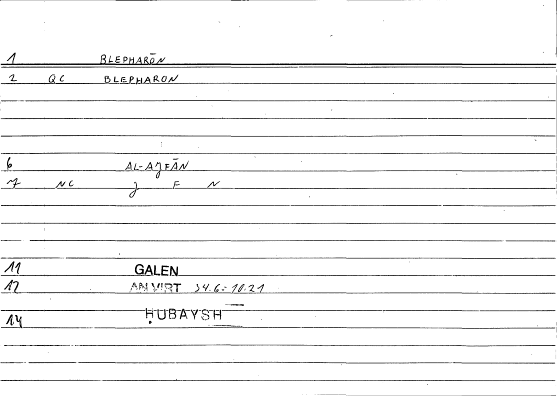 1 BLEPHARŌN
2 QC BLEPHARON
6 AL-AJFĀN
7 NC J F N
11 GALEN
12 AN VIRT 34.6-10.21
14 ḤUBAYSH